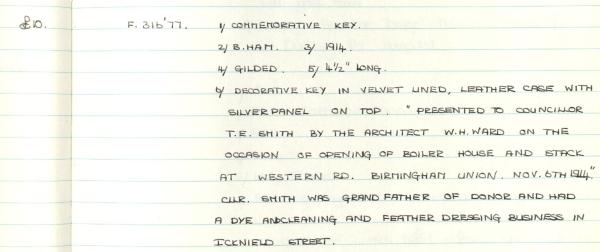 £10. F. 316'77. 1/ COMMEMORATIVE KEY.
2/ B.HAM. 3/ 1914.
4/ GILDED. 5/ 4½" LONG.
6/ DECORATIVE KEY IN VELVET LINED, LEATHER CASE WITH
SILVER PANEL ON TOP. "PRESENTED TO COUNCILLOR
T.E. SMITH BY THE ARCHITECT W.H. WARD ON THE
OCCASION OF OPENING OF BOILER HOUSE AND STACK
AT WESTERN RD. BIRMINGHAM UNION. NOV. 6TH 1914."
CLLR. SMITH WAS GRANDFATHER OF DONOR AND HAD
A DYE ANDCLEANING AND FEATHER DRESSING BUSINESS IN
ICKNIELD STREET.